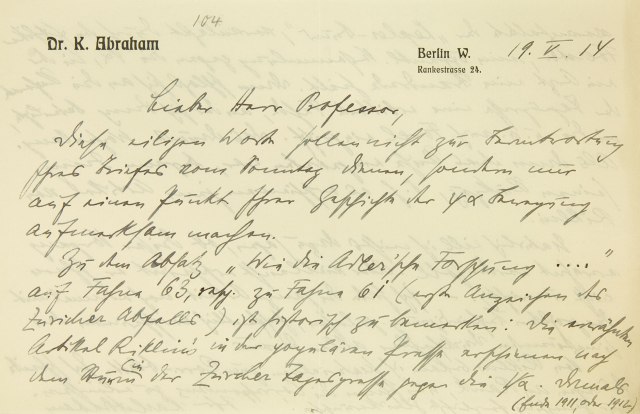 104
Dr. K. Abraham
Berlin W. 19. V. 14
Rankestrasse 24.
Lieber Herr Professor,
Diese eiligen Worte sollen nicht zur Beantwortung
Ihres Briefes vom Sonntag dienen, sondern nur
auf einen Punkt Ihrer Geschichte der ψα Bewegung
aufmerksam machen.
Zu dem Absatz „Wie die Adler'sche Forschung ...."
auf Fahne 63, resp. zu Fahne 61 (erste Anzeichen des
Züricher Abfalls) ist historisch zu bemerken: die erwähnten
Artikel Riklin's in der populären Presse erschienen nach
dem Sturm in der Zürcher Tagespresse gegen die ψα. Damals
(Ende 1911 oder 1912)